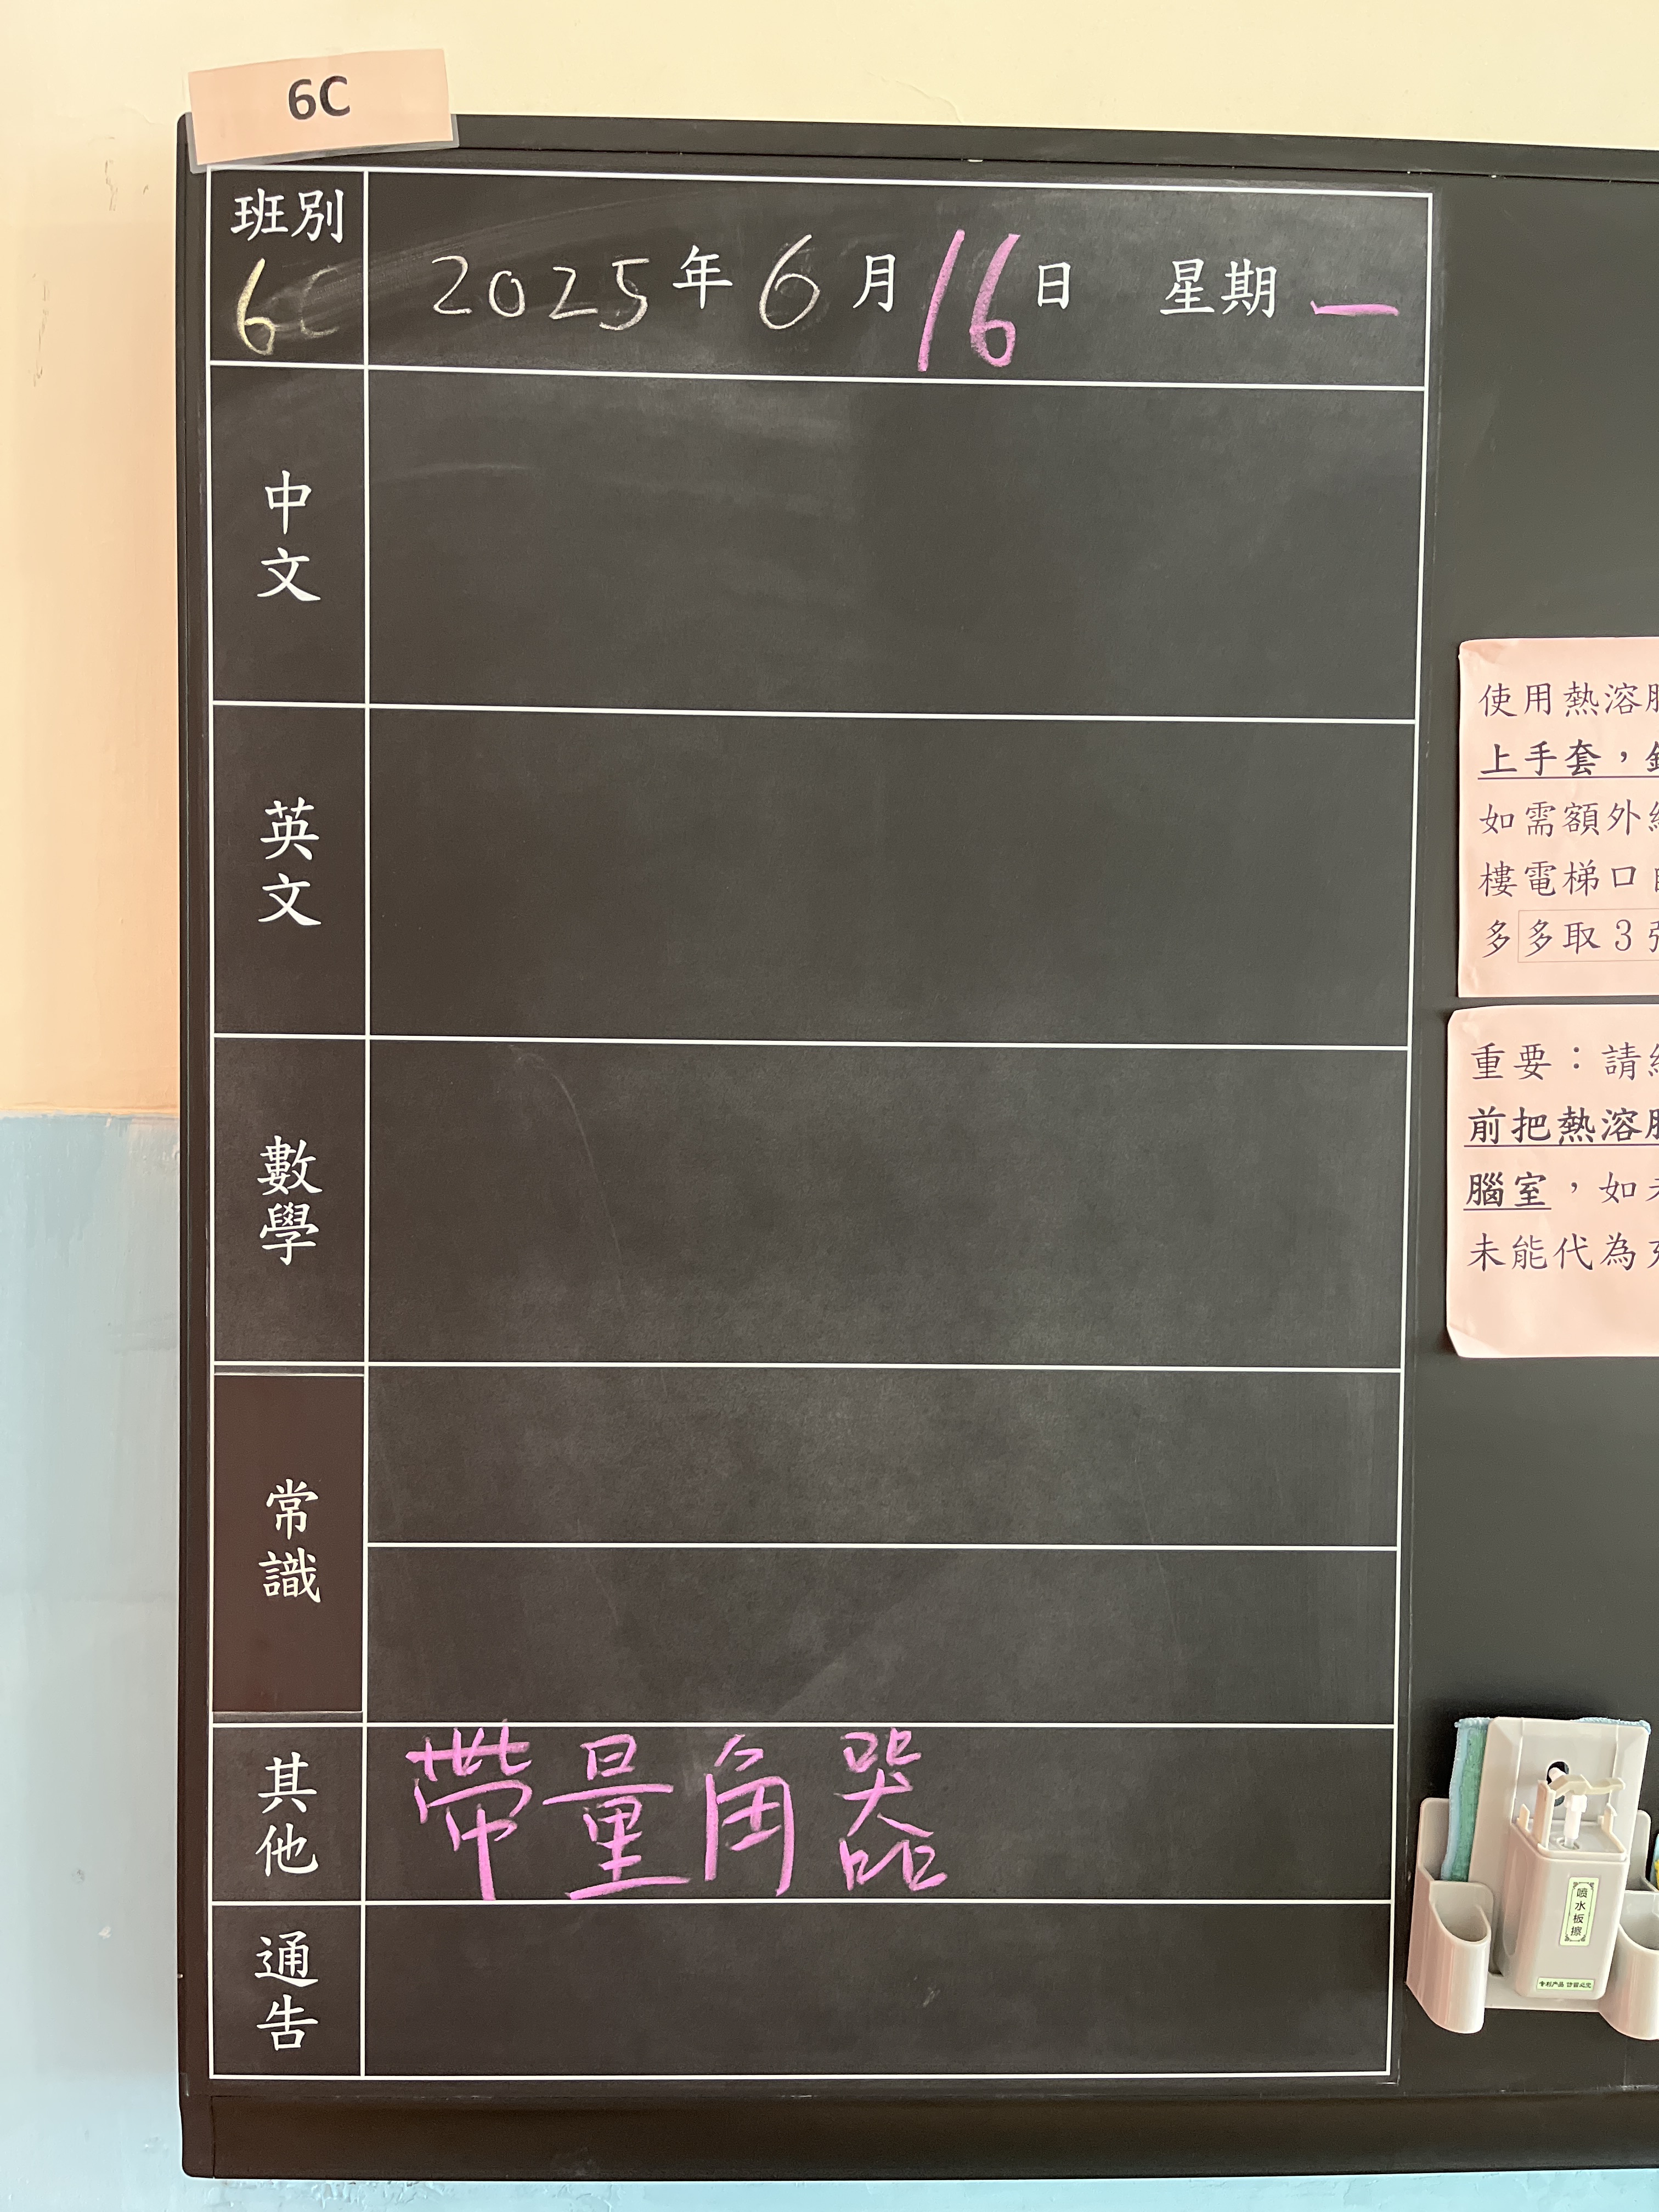 6C
班別
6C
2025年6月16日 星期一
中文
英文
數學
常識
其他
帶量角器
通告
使用熱溶
上手套，
如需額外
樓電梯口
多多取3
重要：請
前把熱溶
腦室，如
未能代為
噴水板擦